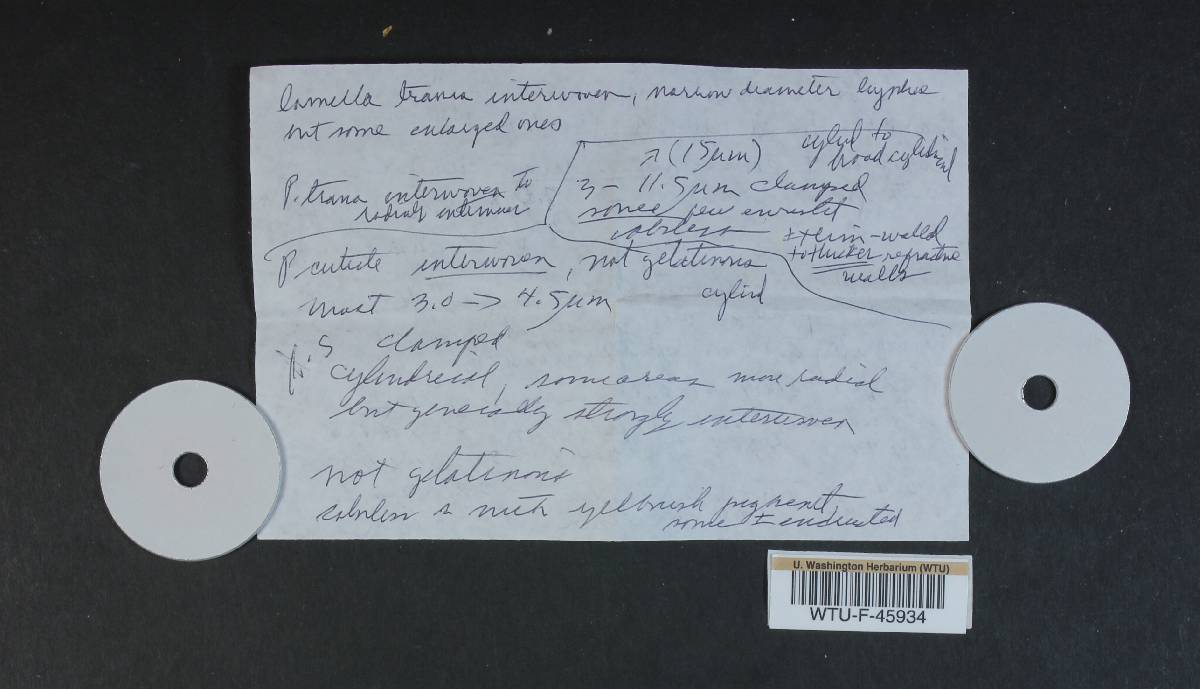 lamella trama interwoven, narrow diameter hyphae
but some enlarged ones
P. trama interwoven to
radially interwoven
(15µm)
cylind to
broad cylindrical
3 - 11.5µm clamped
some few
colorless
± thin-walled
to thicker refractive
walls
P cuticle interwoven, not gelatinous
most 3.0 -> 4.5µm
cylind
clamped
cylindrical, some areas more radial
but generally strongly interwoven
not gelatinous
colorless with yelbrnish pigment
some ± encrusted
U. Washington Herbarium (WTU)
WTU-F-45934